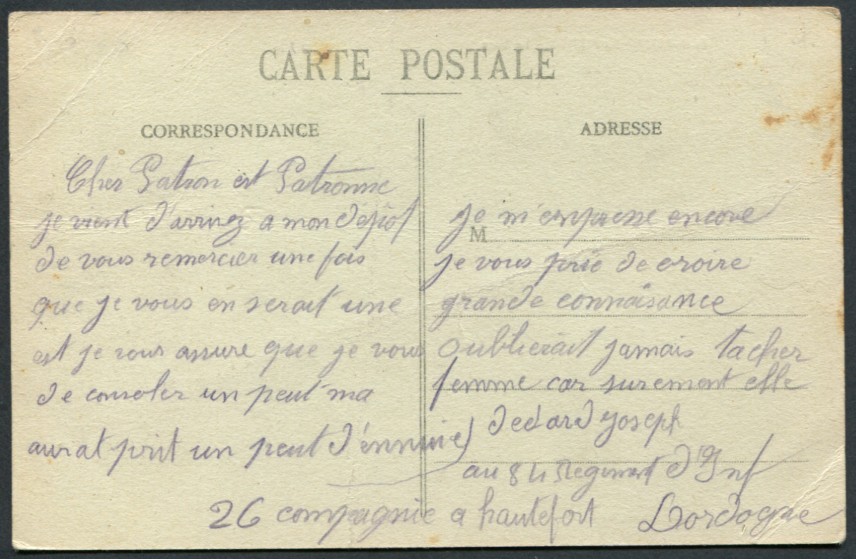 CARTE POSTALE
CORRESPONDANCE
ADRESSE
Cher Patron est Patronne
je vient d'arrivez a mon dépôt je m'empresse encore
M
de vous remercier une fois je vous prie de croire
que je vous en serait une grande connaisance
est je vous assure que je vous oublierait jamais tacher
de consoler un peut ma femme car surement elle
aurat prit un peut d'ennuie) Dedard Joseph
au Regiment d'Inf
26 compagnie a hautefort Dordogne